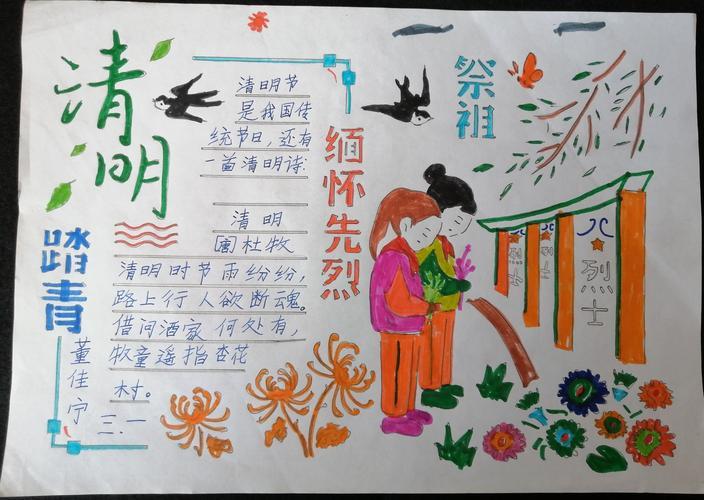 清明
踏青
清明节
是我国传
统节日,还有
一首清明诗:
清明
杜牧
清明时节雨纷纷,
路上行人欲断魂。
借问酒家何处有,
牧童遥指杏花
村。
董佳宁
三.一
缅怀先烈
祭祖
烈士
烈士
烈士